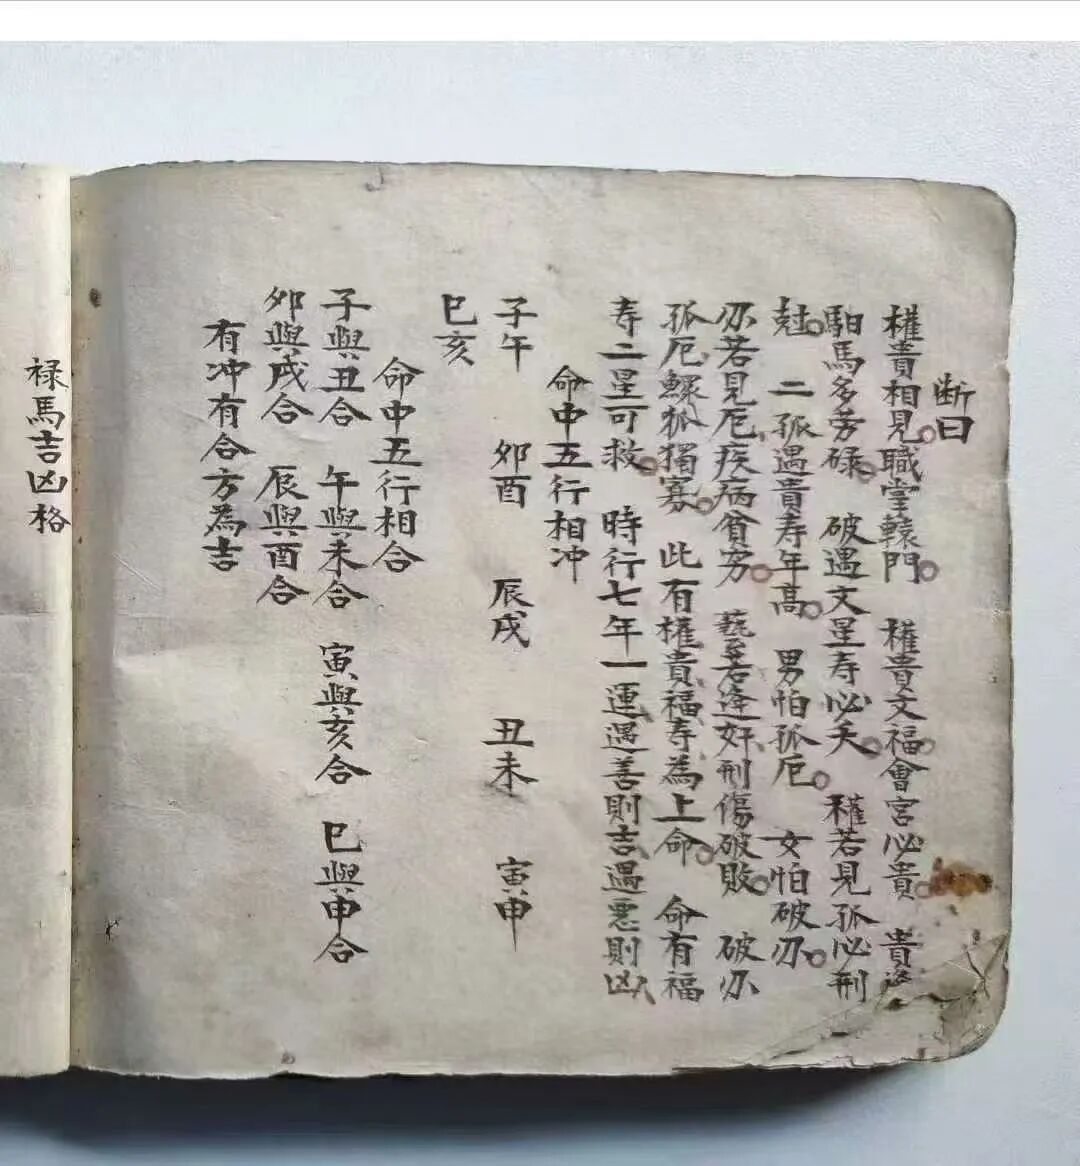 断曰
權貴相見職掌轅門 權貴文福會宮必貴 貴逢
馹馬多劳碌 破遇文星寿必夭 權若見孤必刑
尅 二孤遇貴寿年高 男怕孤厄 女怕破刃
刃若見厄疾病貧穷 藝若逢奸刑傷破敗 破刃
孤厄鰥孤獨寡 此有權貴福寿為上命 命有福
寿二星可救 時行七年一運遇善則吉遇悪則凶
命中五行相冲
子午 卯酉 辰戌 丑未 寅申
巳亥
命中五行相合
子與丑合 午與未合 寅與亥合 巳與申合
卯與戌合 辰與酉合
有冲有合方為吉
禄馬吉凶格